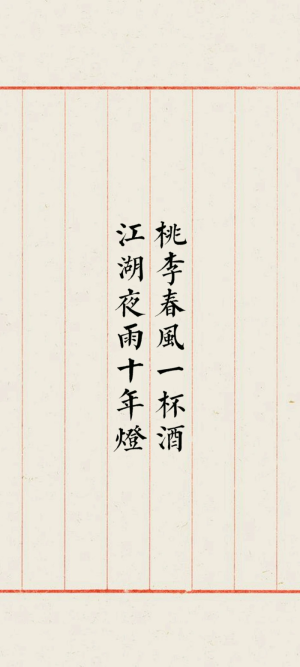 桃李春風一杯酒
江湖夜雨十年燈